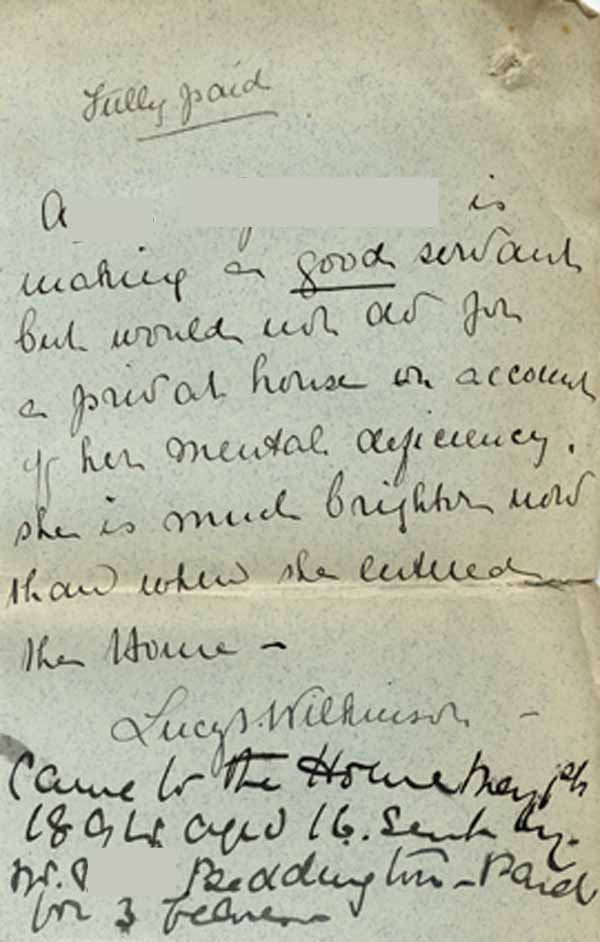 Fully paid
A is
making a good servant
but would not do for
a privat house on account
of her mental deficiency.
she is much brighter now
than when she entered
the Home -
Lucy Wilkinson -
Came to the Home May
aged 16. Sent by
Beddington - Paid
for 3